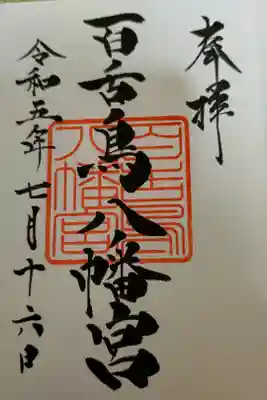 奉拝
百舌鳥八幡宮
百舌鳥
八幡宮
令和五年七月十六日